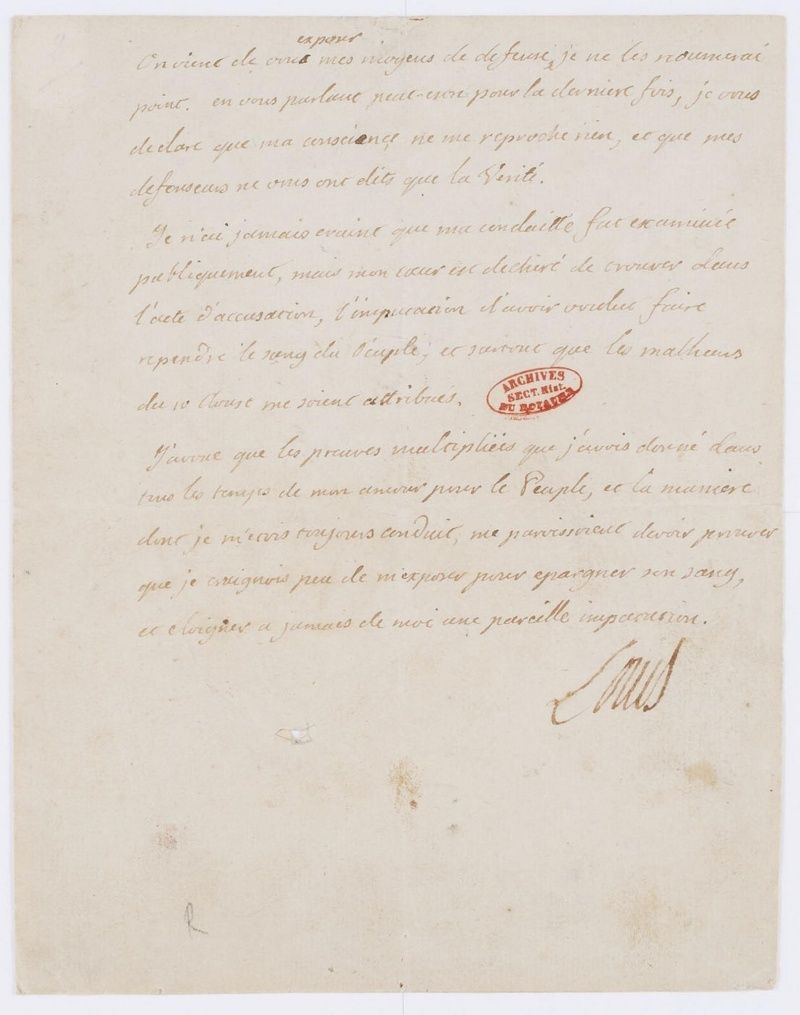 exposer
On vient de vous mes moyens de defense, je ne les renouvelerai
point. en vous parlant peut-etre pour la derniere fois, je vous
declare que ma conscience ne me reproche rien, et que mes
defenseurs ne vous ont dits que la Vérité.
Je n'ai jamais craint que ma conduitte fut examinée
publiquement, mais mon cœur est dechiré de trouver dans
l'acte d'accusation, l'imputation d'avoir voulut faire
rependre le sang du Peuple, et surtout que les malheurs
du 10 Aoust me soient attribués.
ARCHIVES
SECT. Hist.
DU ROYAUME
J'avoue que les preuves multipliées que j'avois donné dans
tous les temps de mon amour pour le Peuple, et la maniere
dont je m'etois toujours conduit, me paroissoient devoir prouver
que je craignois peu de m'exposer pour epargner son sang,
et eloigner a jamais de moi une pareille imputation.
Louis
R